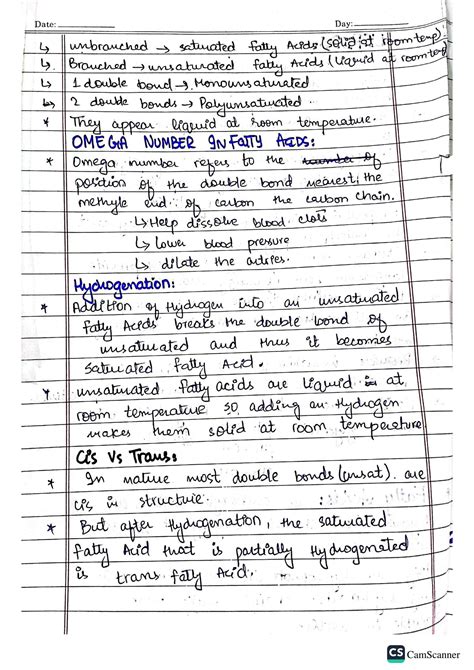 Date: Day:
↳ unbranched → saturated fatty Acids (solid at room temp)
↳ Branched → unsaturated fatty Acids (liquid at room temp
↳ 1 double bond → Monounsaturated
↳ 2 double bonds → Polyunsaturated.
* They appear liquid at room temperature.
OMEGA NUMBER IN FATTY ACIDS:
* Omega number refers to the number of
position of the double bond nearest, the
methyle end of carbon the carbon chain.
↳ Help dissolve blood clots
↳ lower blood pressure
↳ dilate the arteries.
Hydrogenation:
* Addition of Hydrogen into an unsaturated
fatty Acids breaks the double bond of
unsaturated and thus it becomes
saturated fatty Acid.
* unsaturated fatty acids are liquid at
room temperature so adding an Hydrogen
makes them solid at room temperature
Cis Vs Trans:
* In nature most double bonds (unsat). are
cis in structure.
* But after Hydrogenation, the saturated
fatty Acid that is partially Hydrogenated
is trans fatty Acid.
CS CamScanner